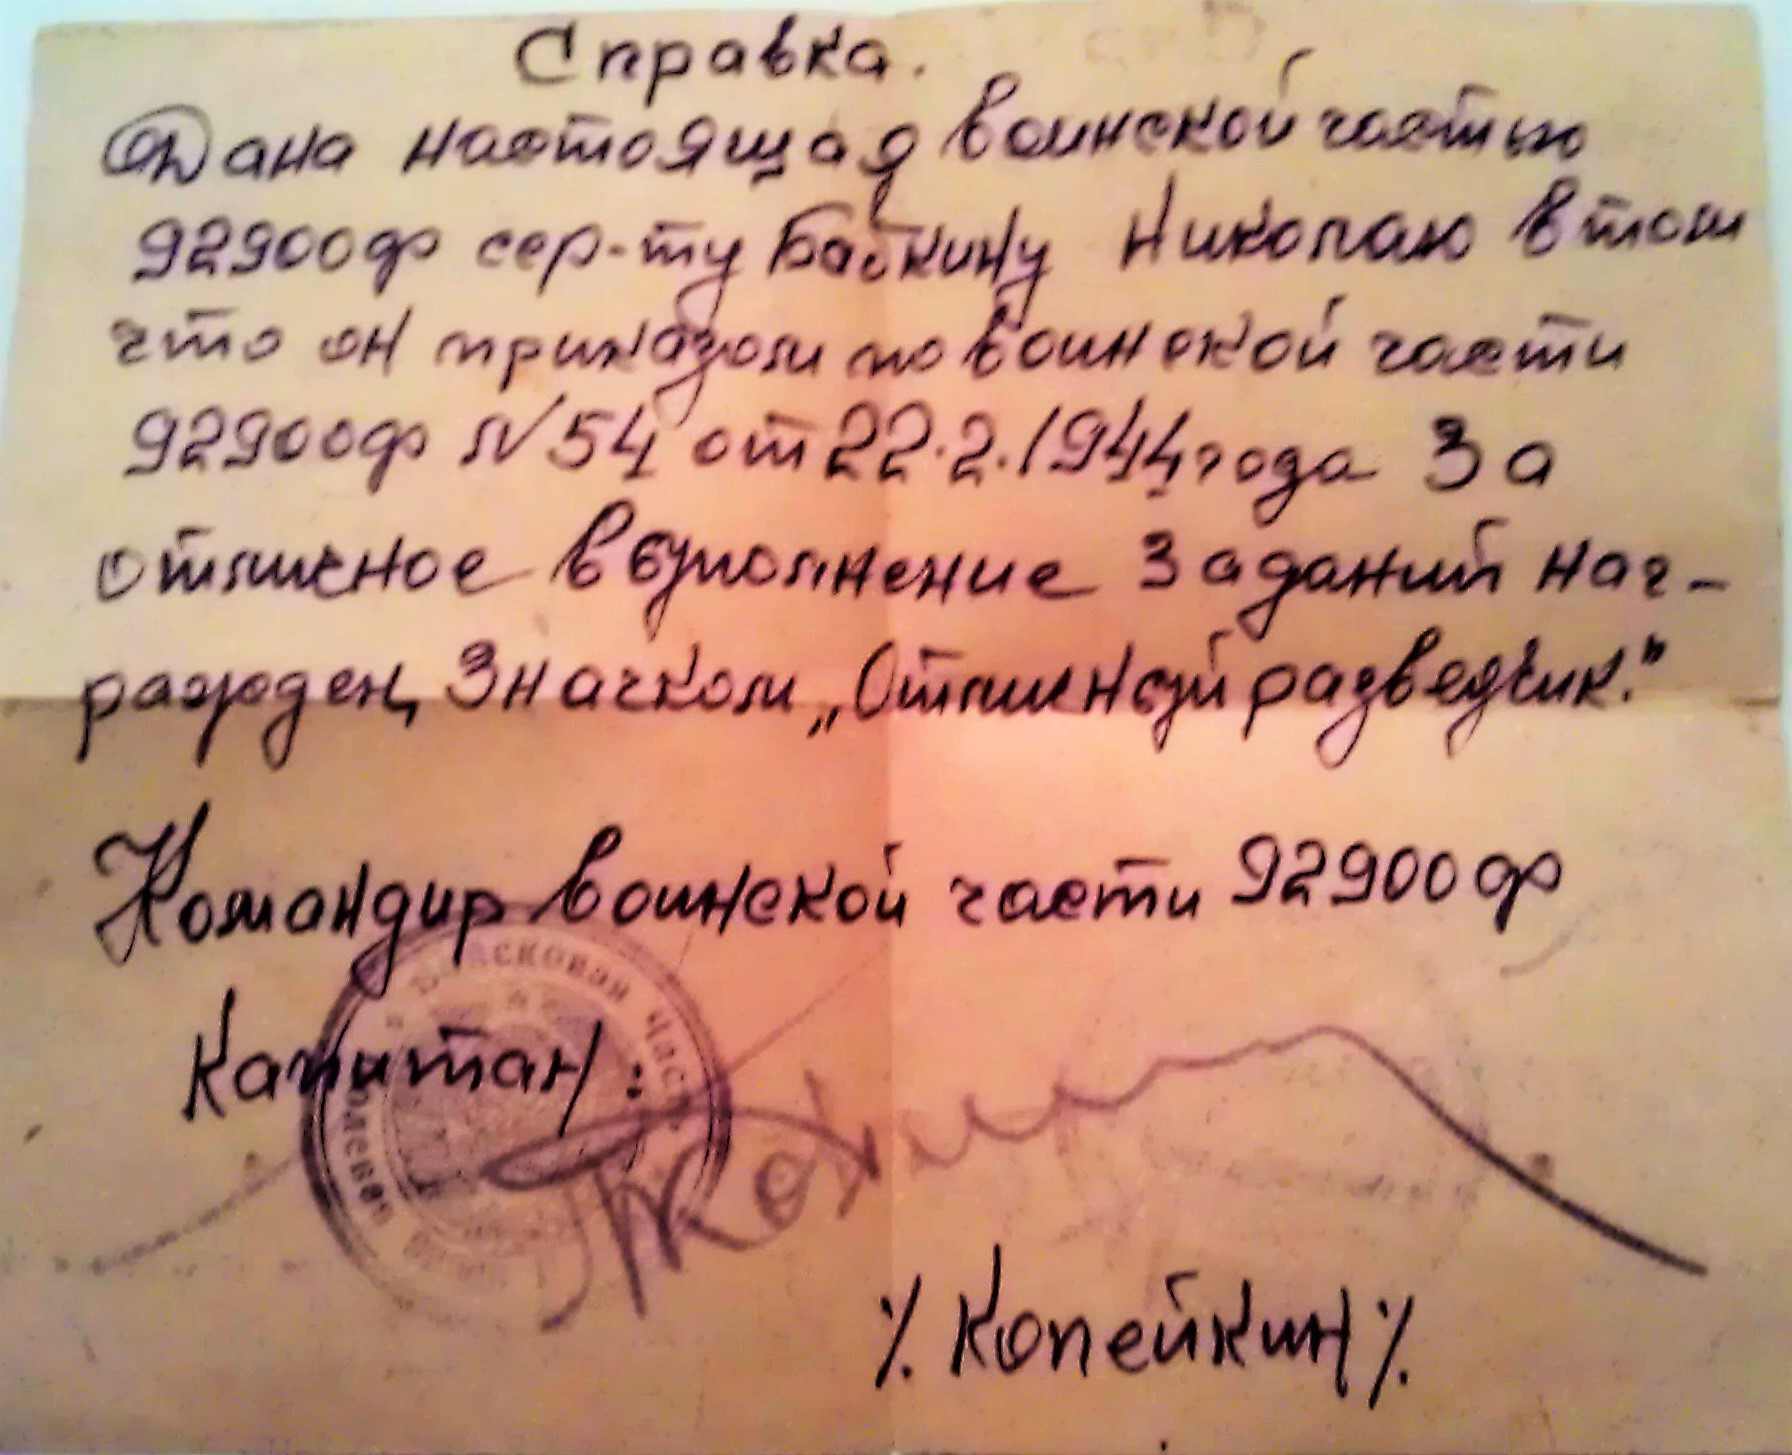 Справка.
Дана настоящая воинской частью
92900ф сер-ту Бабкину Николаю в том
что он приказом по воинской части
92900ф N54 от 22.2.1944 года За
отличное выполнение Заданий наг-
ражден, Значком „Отличный разведчик."
Командир воинской части 92900ф
Капитан:
Войсковая часть
полевая
/. Копейкин /.